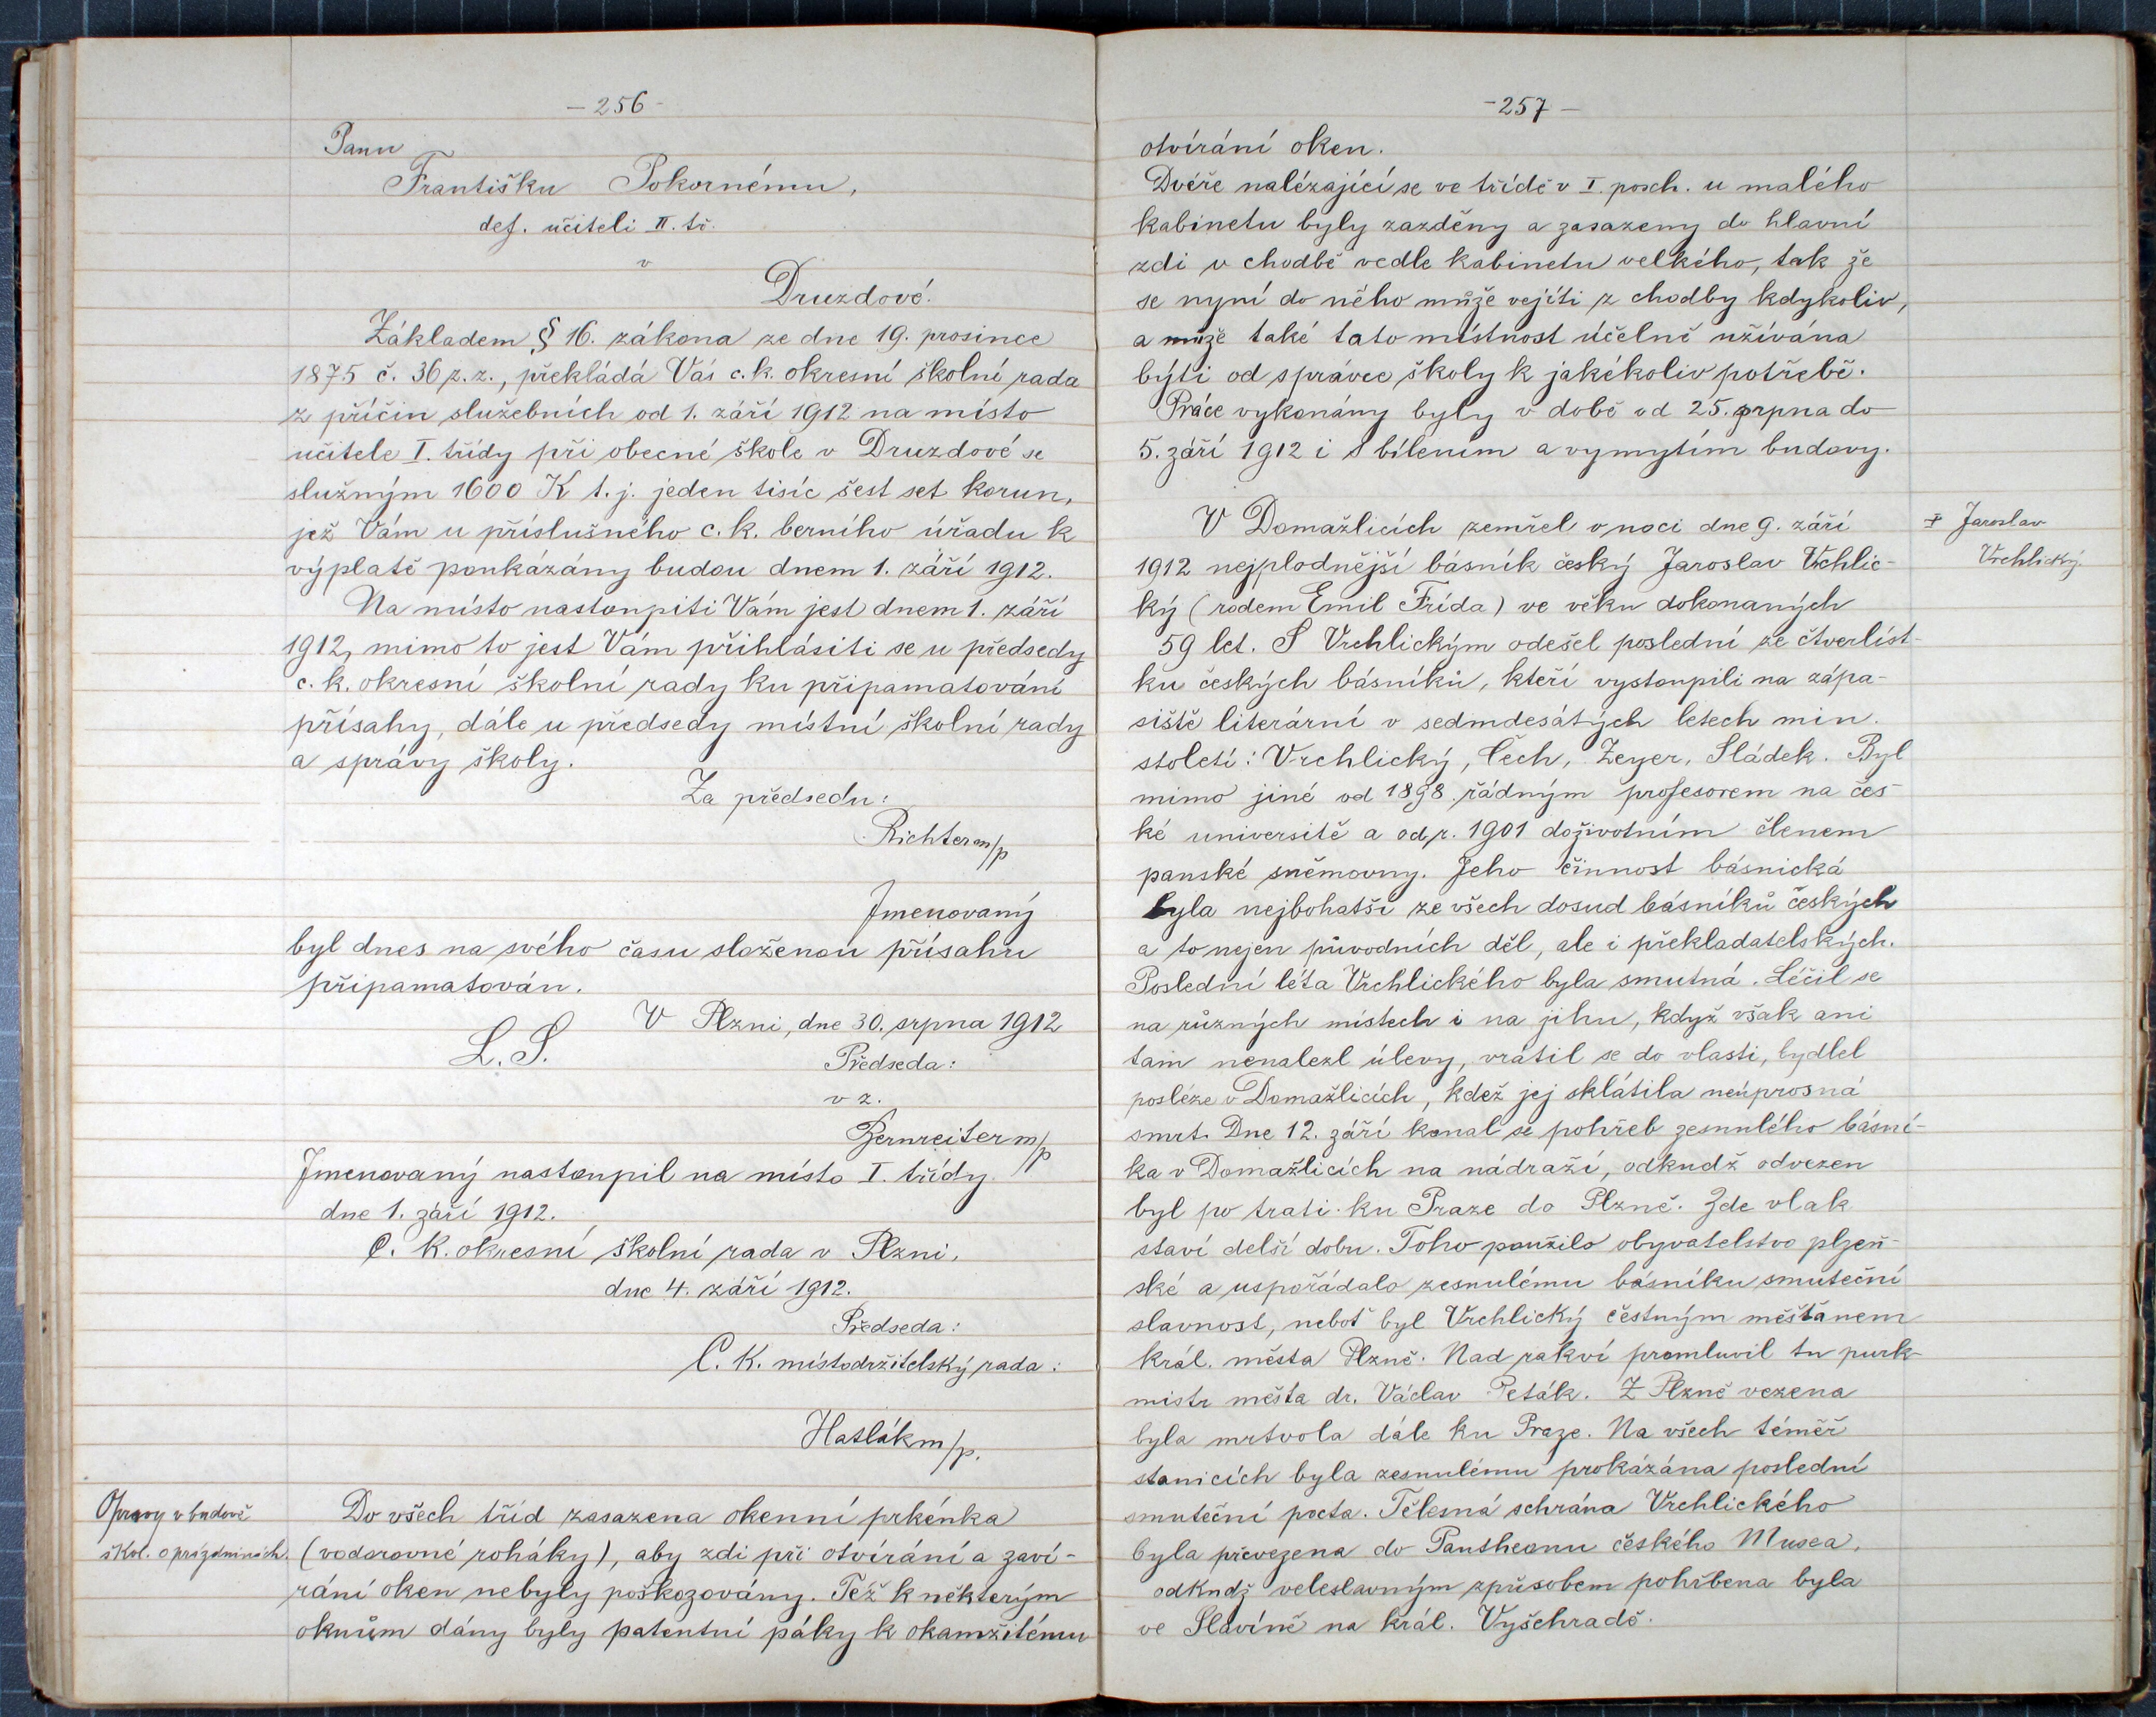 - 256 -
Panu
Františku Pokornému,
def. učiteli II. tř.
v
Druzdově.
Základem § 16. zákona ze dne 19. prosince
1875 č. 36 z. z., překládá Vás c. k. okresní školní rada
z příčin služebních od 1. září 1912 na místo
učitele I. třídy při obecné škole v Druzdově se
služným 1600 K t. j. jeden tisíc šest set korun,
jež Vám u příslušného c. k. berního úřadu k
výplatě poukázány budou dnem 1. září 1912.
Na místo nastoupiti Vám jest dnem 1. září
1912, mimo to jest Vám přihlásiti se u předsedy
c. k. okresní školní rady ku připamatování
přísahy, dále u předsedy místní školní rady
a správy školy.
Za předsedu:
Richter m/p
Jmenovaný
byl dnes na svého času složenou přísahu
připamatován.
V Plzni, dne 30. srpna 1912
L. S.
Předseda:
v z.
Bernreiter m/p
Jmenovaný nastoupil na místo I. třídy
dne 1. září 1912.
C. K. okresní školní rada v Plzni,
dne 4. září 1912.
Předseda:
C. K. místodržitelský rada:
Hatlák m/p.
Opravy v budově
škol. o prázdninách.
Do všech tříd zasazena okenní prkénka
(vodorovné roháky), aby zdi při otvírání a zaví-
rání oken nebyly poškozovány. Též k některým
oknům dány byly patentní páky k okamžitému
- 257 -
otvírání oken.
Dvéře nalézající se ve třídě v I. posch. u malého
kabinetu byly zazděny a zasazeny do hlavní
zdi v chodbě vedle kabinetu velkého, tak že
se nyní do něho může vejíti z chodby kdykoliv,
a může také tato místnost účelně užívána
býti od správce školy k jakékoliv potřebě.
Práce vykonány byly v době od 25. srpna do
5. září 1912 i s bílením a vymytím budovy.
V Domažlicích zemřel v noci dne 9. září
1912 nejplodnější básník český Jaroslav Vrchlic-
ký (rodem Emil Frída) ve věku dokonaných
59 let. S Vrchlickým odešel poslední ze čtverlíst-
ku českých básníků, kteří vystoupili na zápa-
siště literární v sedmdesátých letech min.
století: Vrchlický, Čech, Zeyer, Sládek. Byl
mimo jiné od 1898. řádným profesorem na čes-
ké universitě a od r. 1901 doživotním členem
panské sněmovny. Jeho činnost básnická
byla nejbohatší ze všech dosud básníků českých
a to nejen původních děl, ale i překladatelských.
Poslední léta Vrchlického byla smutná. Léčil se
na různých místech i na jihu, když však ani
tam nenalezl úlevy, vrátil se do vlasti, bydlel
posléze v Domažlicích, kdež jej sklátila neúprosná
smrt. Dne 12. září konal se pohřeb zesnulého básní-
ka v Domažlicích na nádraží, odkudž odvezen
byl po trati ku Praze do Plzně. Zde vlak
staví delší dobu. Toho použilo obyvatelstvo plzeň-
ské a uspořádalo zesnulému básníku smuteční
slavnost, neboť byl Vrchlický čestným měšťanem
král. města Plzně. Nad rakví promluvil tu purk-
mistr města dr. Václav Peták. Z Plzně vezena
byla mrtvola dále ku Praze. Na všech téměř
stanicích byla zesnulému prokázána poslední
smuteční pocta. Tělesná schrána Vrchlického
byla převezena do Pantheonu českého Musea,
odkudž veleslavným způsobem pohřbena byla
ve Slavíně na král. Vyšehradě.
† Jaroslav
Vrchlický.